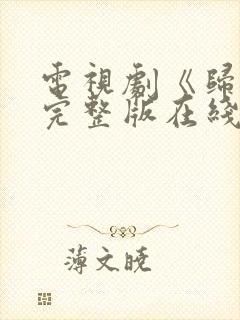 電視劇《歸
完整版在綫
薄文曉